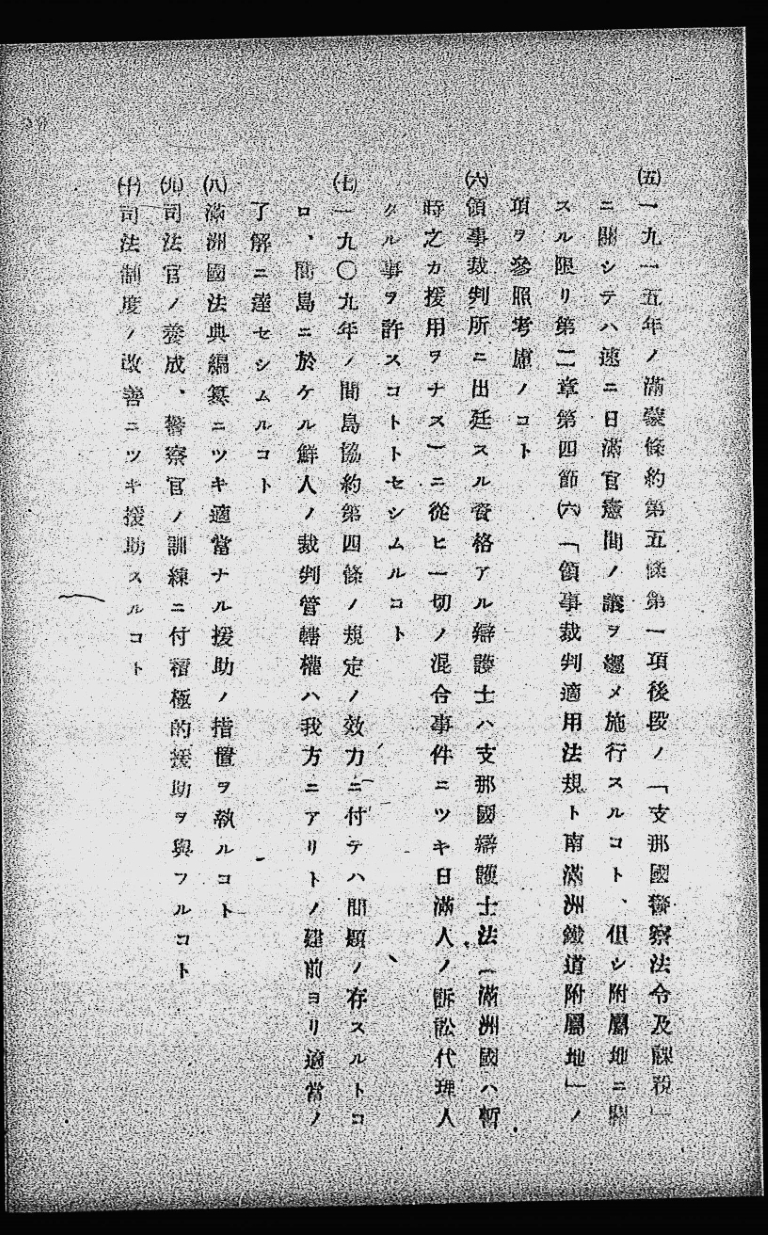 ㈤一九一五年ノ滿蒙條約第五條第一項後段ノ「支那國警察法令及課稅」
ニ關シテハ速ニ日滿官憲間ノ議ヲ纒メ施行スルコト、但シ附屬地ニ關
スル限リ第二章第四節㈥「領事裁判適用法規ト南滿洲鐵道附屬地」ノ
項ヲ參照考慮ノコト
㈥領事裁判所ニ出廷スル資格アル辯護士ハ支那國辯護士法（滿洲國ハ暫
時之カ援用ヲナス）ニ從ヒ一切ノ混合事件ニツキ日滿人ノ訴訟代理人
タル事ヲ許スコトトセシムルコト
㈦一九〇九年ノ間島協約第四條ノ規定ノ效力ニ付テハ問題ノ存スルトコ
ロ、間島ニ於ケル鮮人ノ裁判管轄權ハ我方ニアリトノ建前ヨリ適當ノ
了解ニ達セシムルコト
㈧滿洲國法典編纂ニツキ適當ナル援助ノ措置ヲ執ルコト
㈨司法官ノ養成、警察官ノ訓練ニ付積極的援助ヲ與フルコト
㈩司法制度ノ改善ニツキ援助スルコト